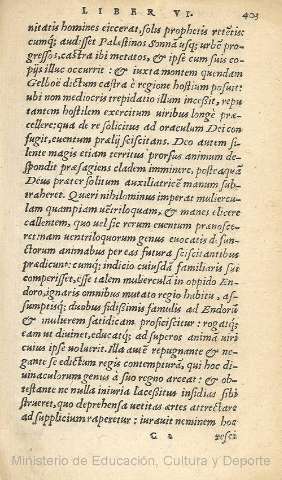 LIBER VI. 403
nitatis homines eiecerat, solis prophetis retētis:
cumq; audisset Palæstinos Sonnā usq; urbē pro-
gressos, castra ibi metatos, & ipse cum suis co-
pijs illuc occurrit : & iuxta montem quendam
Gelboë dictum castra è regione hostium posuit:
ubi non mediocris trepidatio illum incessit, repu
tantem hostilem exercitum uiribus longè præ-
cellere: qua de re solicitus ad oraculum Dei con
fugit, euentum prælij sciscitans. Deo autem si-
lente magis etiam territus prorsus animum de-
spondit præsagiens cladem imminere, posteaquā
Deus præter solitum auxiliatricē manum sub-
traheret. Quæri nihilominus imperat mulercu-
lam quampiam uētriloquam, & manes elicere
callentem, quo uel sic rerum euentum prænosce-
ret: nam uentriloquorum genus euocatis defun-
ctorum animabus per eas futura sciscitantibus
prædicunt: cumq; indicio cuiusdā familiaris sui
comperisset, esse talem muliercula in oppido En-
doro, ignaris omnibus mutato regio habitu, as-
sumptisq; duobus fidissimis famulis ad Endorū
& mulierem fatidicam proficiscitur : rogatq;
eam ut diuinet, educatq; ad superos animā uiri
cuius ipse uoluerit. Illa autē repugnante & ne-
gante se edictum regis contempturā, qui hoc di-
uinaculorum genus à suo regno arceat : & ob-
testante ne nulla iniuria lacessitus insidias sibi
strueret, quo deprehensa uetitas artes attrectare
ad supplicium raperetur : iurauit neminem hoc
C c 2 resci
Ministerio de Educación, Cultura y Deporte